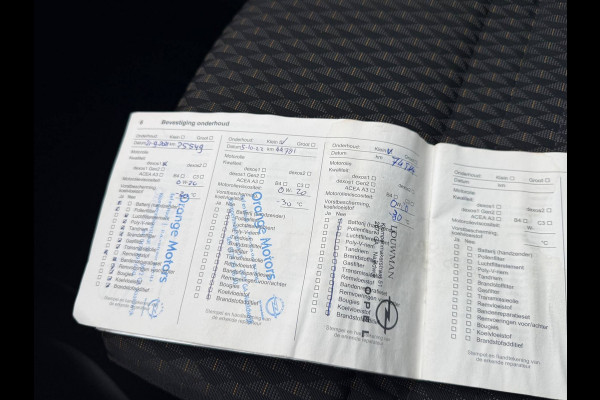 6 Bevestiging onderhoud
Onderhoud: Klein Groot
Datum km 25549
Motorolie
Kwaliteit:
dexos1 dexos2
dexos1 Gen2
ACEA A3 B4 C3
Motorolieviscositeit:
0W20
Vorstbescherming,
koelvloeistof
Ja Nee
Batterij (handzender)
Pollenfilter
Luchtfilterelement
Poly-V-riem
Tandriem
Brandstoffilter
Gasfilter
Transmissieolie
Remvloeistof
Bandenreparatieset
Bougies
Koelvloeistof
Brandstofadditief
Stempel en handtekening van
de erkende reparateur
Orange Motors
Onderhoud: Klein Groot
Datum 5-10-22 km
Motorolie
Kwaliteit:
dexos1 dexos2
dexos1 Gen2
ACEA A3 B4 C3
Motorolieviscositeit:
0W-20
Vorstbescherming,
koelvloeistof
-30 °C
Ja Nee
Batterij (handzender)
Pollenfilter
Luchtfilterelement
Poly-V-riem
Tandriem
Brandstoffilter
Gasfilter
Transmissieolie
Remvloeistof
Bandenreparatieset
Remvoeringen voor/achter
Bougies
Koelvloeistof
Brandstofadditief
Stempel en handtekening van
de erkende reparateur
Orange Motors
Onderhoud: Klein Groot
Datum km
Motorolie
Kwaliteit:
dexos1 dexos2
dexos1 Gen2
ACEA A3 B4 C3
Motorolieviscositeit:
Vorstbescherming,
koelvloeistof
°C
Ja Nee
Batterij (handzender)
Pollenfilter
Luchtfilterelement
Poly-V-riem
Tandriem
Brandstoffilter
Gasfilter
Transmissieolie
Remvloeistof
Bandenreparatieset
Remvoeringen
Bougies
Koelvloeistof
Brandstofadditief
Stempel en handtekening van
de erkende reparateur
LOUWMAN
OPEL
Onderhoud: Klein Groot
Datum km
Motorolie
Kwaliteit:
dexos1 dexos2
dexos1 Gen2
ACEA A3 B4 C3
Motorolieviscositeit: W
Vorstbescherming,
koelvloeistof
°C
Ja Nee
Batterij (handzender)
Pollenfilter
Luchtfilterelement
Poly-V-riem
Tandriem
Brandstoffilter
Gasfilter
Transmissieolie
Remvloeistof
Bandenreparatieset
Remvoeringen voor/achter
Bougies
Koelvloeistof
Brandstofadditief
Stempel en handtekening van
de erkende reparateur